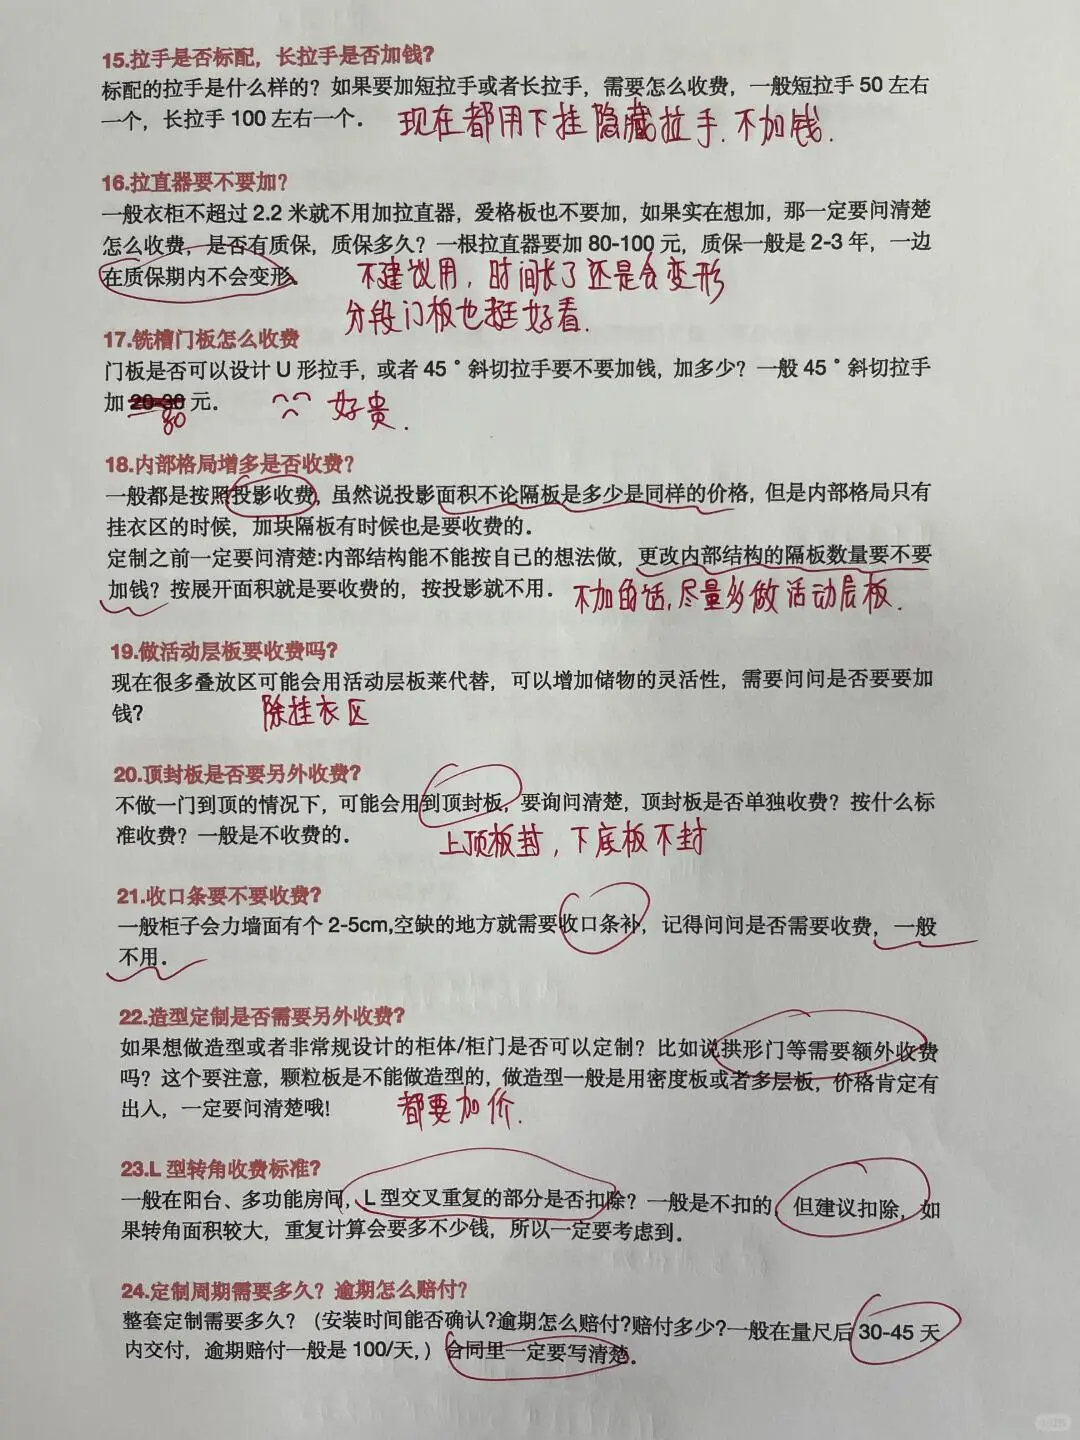 15.拉手是否标配，长拉手是否加钱?
标配的拉手是什么样的？如果要加短拉手或者长拉手，需要怎么收费，一般短拉手 50 左右
一个，长拉手 100 左右一个。 现在都用下挂隐藏拉手.不加钱.
16.拉直器要不要加？
一般衣柜不超过 2.2 米就不用加拉直器，爱格板也不要加，如果实在想加，那一定要问清楚
怎么收费，是否有质保，质保多久？一根拉直器要加 80-100 元，质保一般是 2-3 年，一边
在质保期内不会变形。 不建议用，时间长了还是会变形
分段门板也挺好看.
17.铣槽门板怎么收费
门板是否可以设计 U 形拉手，或者 45 ° 斜切拉手要不要加钱，加多少？一般 45 ° 斜切拉手
加 20-30 元。 好贵.
80
18.内部格局增多是否收费？
一般都是按照投影收费，虽然说投影面积不论隔板是多少是同样的价格，但是内部格局只有
挂衣区的时候，加块隔板有时候也是要收费的。
定制之前一定要问清楚:内部结构能不能按自己的想法做，更改内部结构的隔板数量要不要
加钱？按展开面积就是要收费的，按投影就不用。 不加的话,尽量多做活动层板.
19.做活动层板要收费吗?
现在很多叠放区可能会用活动层板菜代替，可以增加储物的灵活性，需要问问是否要要加
钱? 除挂衣区
20.顶封板是否要另外收费?
不做一门到顶的情况下，可能会用到顶封板，要询问清楚，顶封板是否单独收费？按什么标
准收费？一般是不收费的。 上顶板封，下底板不封
21.收口条要不要收费?
一般柜子会力墙面有个 2-5cm,空缺的地方就需要收口条补，记得问问是否需要收费，一般
不用。
22.造型定制是否需要另外收费?
如果想做造型或者非常规设计的柜体/柜门是否可以定制？比如说拱形门等需要额外收费
吗？这个要注意，颗粒板是不能做造型的，做造型一般是用密度板或者多层板，价格肯定有
出入，一定要问清楚哦! 都要加价.
23.L 型转角收费标准?
一般在阳台、多功能房间，L 型交叉重复的部分是否扣除？一般是不扣的，但建议扣除，如
果转角面积较大，重复计算会要多不少钱，所以一定要考虑到。
24.定制周期需要多久？逾期怎么赔付?
整套定制需要多久？（安装时间能否确认?逾期怎么赔付?赔付多少?一般在量尺后 30-45 天
内交付，逾期赔付一般是 100/天，）合同里一定要写清楚。